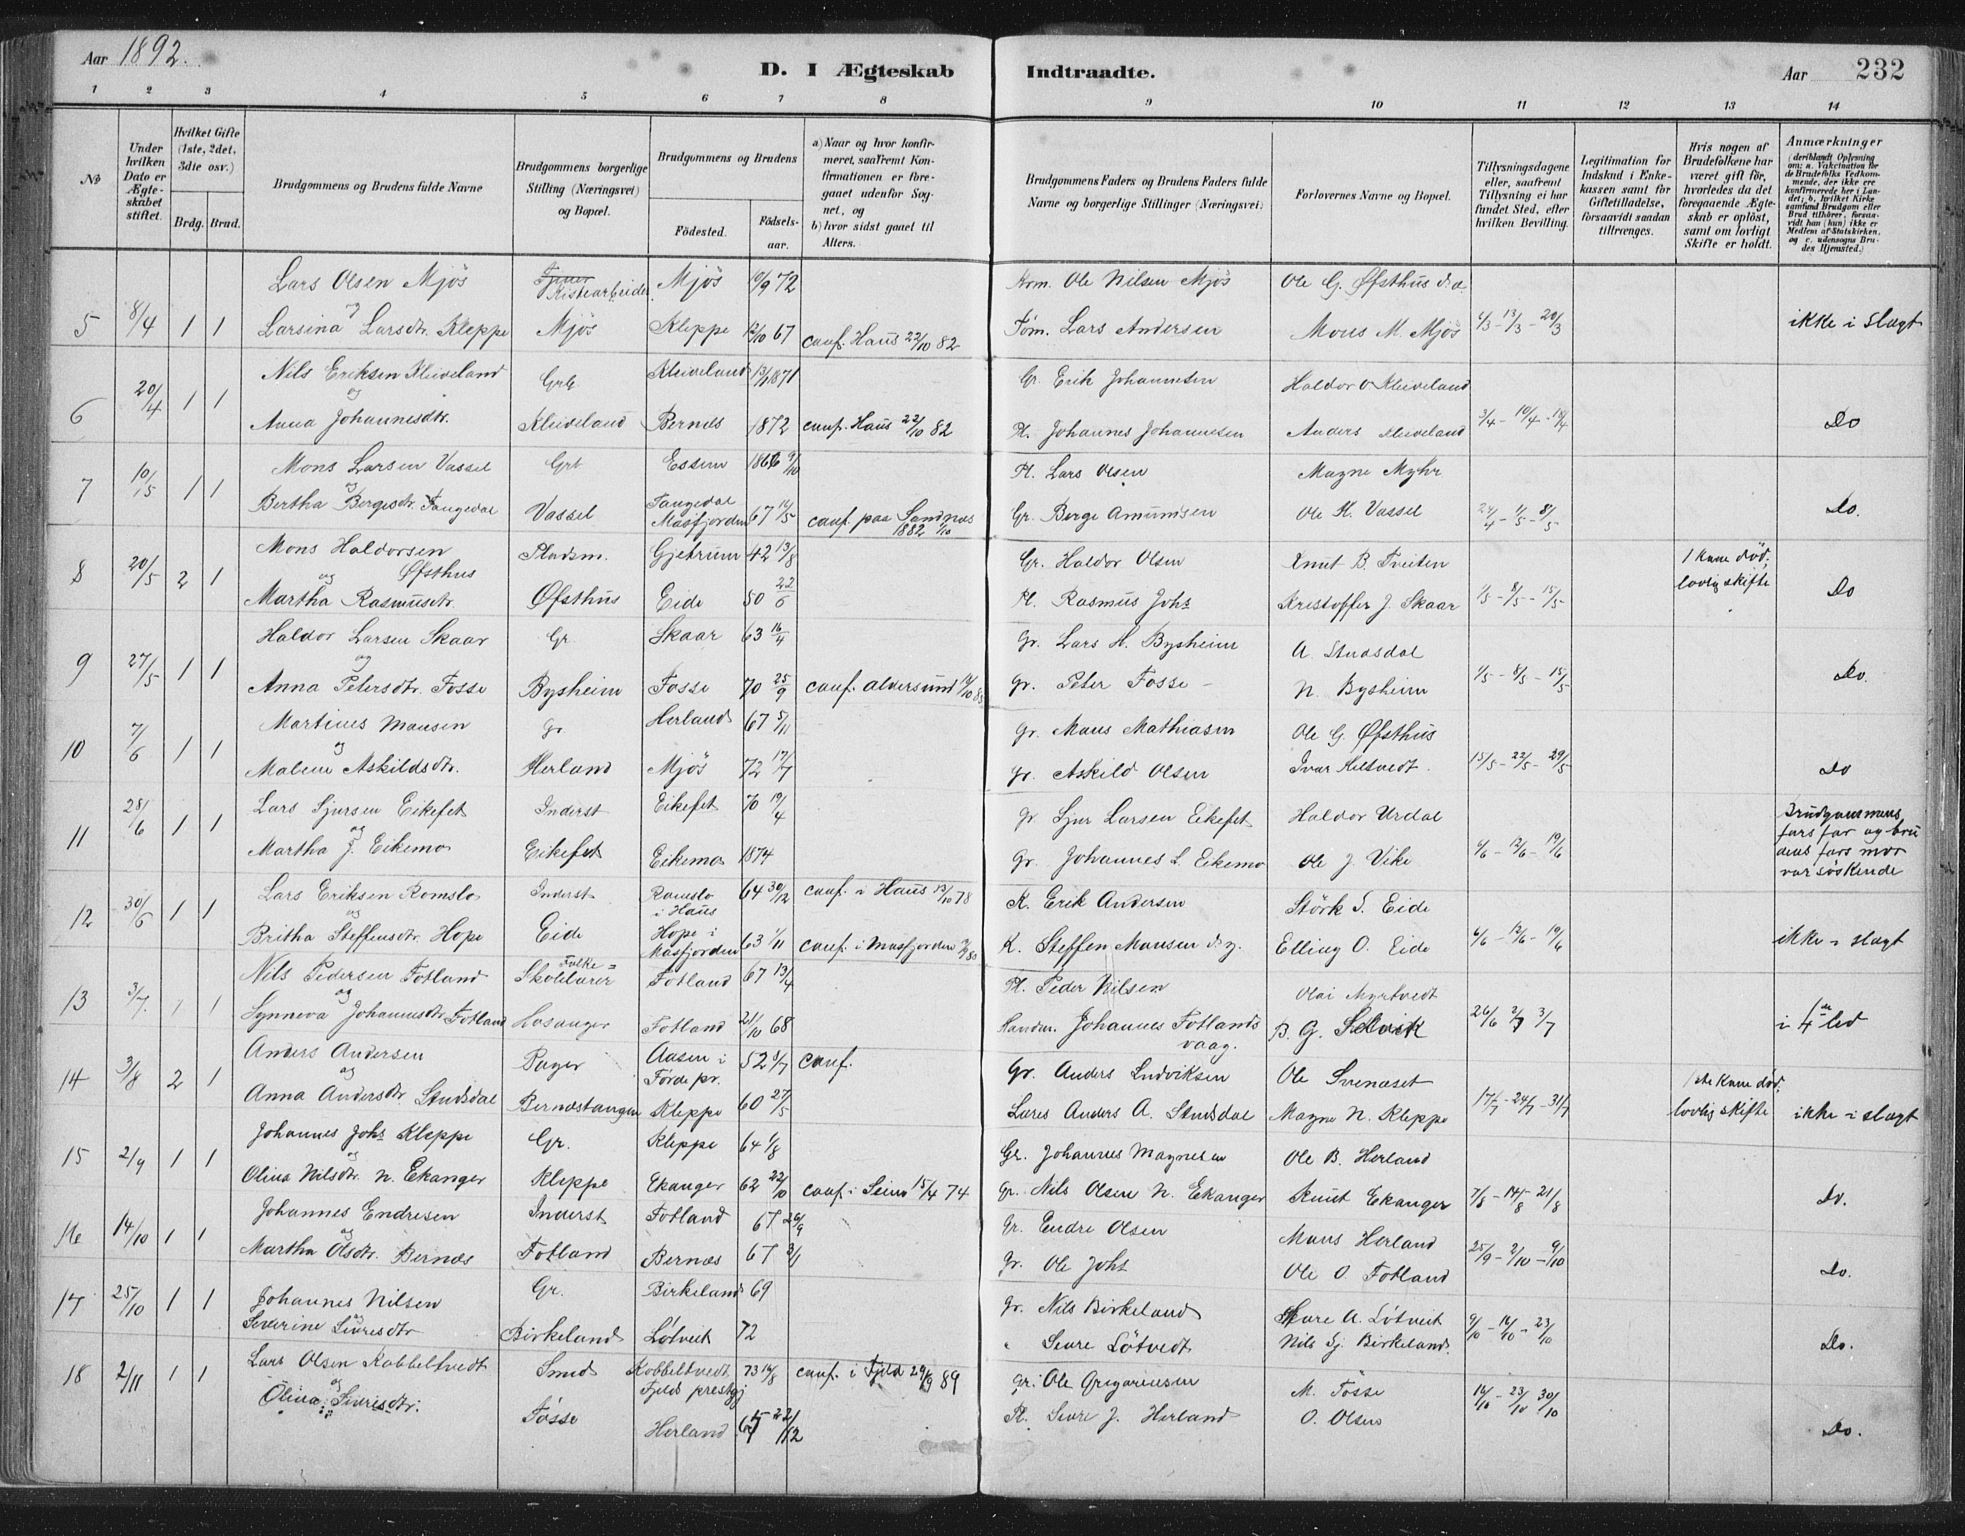 Aar 1892.
D. I Ægteskab Indtraadte.
Aar 232
1 2 3 4 5 6 7 8 9 10 11 12 13 14
No
Under hvilken Dato er Ægteskabet stiftet.
Hvilket Gifte (1ste, 2det, 3die osv.)
Brdg. Brud.
Brudgommens og Brudens fulde Navne
Brudgommens borgerlige Stilling (Næringsvei) og Bopæl.
Brudgommens og Brudens
Födested. Födsels-aar.
a) Naar og hvor konfirmeret, saafremt Konfirmationen er foregaaet udenför Sognet, og b) hvor sidst gaaet til Alters.
Brudgommens Faders og Brudens Faders fulde Navne og borgerlige Stillinger (Næringsvei)
Forlovernes Navne og Bopæl.
Tillysningsdagene eller, saafremt Tillysning ei har fundet Sted, efter hvilken Bevilling.
Legitimation for Indskud i Enkekassen samt för Giftetilladelse, forsaavidt saadan tiltrænges.
Hvis nogen af Brudefolkene har været gift för, hvorledes da det foregaaende Ægteskab er oplöst, samt om lovligt Skifte er holdt.
Anmærkninger (deriblandt Oplysning om: a. Vakcination for de Brudefolks Vedkommende, der ikke ere konfirmerede her i Landet; b. hvilket Kirkesamfund Brudgom eller Brud tilhörer, forsaavidt han (hun) ikke er Medlem af Statskirken, og c. udensogns Brudes Hjemsted.)
Lars Olsen Mjös Kistearbeider Mjös 10/9 72 Ole Nilsen Mjös Ole G. Øfsthus
5 8/4 1 1 og Larsina Larsdtr. Kleppe Mjös Kleppe 12/10 67 conf. Haus 22/10 82 Lars Andersen Mons M. Mjös 6/3 - 13/3 - 20/3 ikke i slægt
Nils Eriksen Kleiveland Grb Kleiveland 13/1 1871 Gr. Erik Johannesen Haldor O Kleiveland
6 20/4 1 1 og Anna Johannesdtr. Kleiveland Bernes 1872 conf. Haus 22/10 82 Pl. Johannes Johannesen Anders Kleiveland 3/4 - 10/4 - 18/4 Do
Mons Larsen Vassel Grb Essem 1866 9/10 Pl. Lars Olsen Magne Myhr
7 10/5 1 1 og Bertha Bergesdtr. Tangedal Vassel Tangedal Masfjorden 67 16/5 conf. paa Sandnes 1882 1/10 Gr. Berge Amundsen Ole H. Vassel 24/4 - 1/5 - 8/5 Do.
Mons Haldorsen Øfsthus Pladsm. Gjetrum 42 13/8 Gr. Haldor Olsen Knut B. Tveiten 1 kone död; lovlig skifte
8 20/5 2 1 og Martha Rasmusdtr. Øfsthus Eide 50 22/6 Pl. Rasmus Johs Kristoffer J. Skaar 1/5 - 8/5 - 15/5 Do
Haldor Larsen Skaar Gr. Skaar 63 16/4 Gr. Lars H. Bysheim A. Studsdal
9 27/5 1 1 og Anna Petersdtr. Fosse Bysheim Fosse 70 25/9 conf. alversund Gr. Peter Fosse N. Bysheim 1/5 - 8/5 - 15/5 Do.
Martines Mansen Gr Herland 67 5/11 Gr. Mans Mathiasen Ole G. Øfsthus
10 7/6 1 1 og Malene Askildsdtr. Herland Mjös 72 17/7 Gr. Askild Olsen Ivar Hiltvedt. 15/5 - 22/5 - 29/5 Do
Lars Sjursen Eikefet Inderst Eikefet 70 19/4 Gr Sjur Larsen Eikefet Haldor Urdal Brudgommens fars far og brudens fars mor var söskende
11 28/6 1 1 og Martha J. Eikemo Eikefet Eikemo 1874 Gr. Johannes L Eikemo Ole J. Vike 6/6 - 12/6 - 19/6
Lars Eriksen Romslo Inderst Romslo i Haus 64 30/12 conf. i Haus 13/10 78 K. Erik Andersen Störk S. Eide
12 30/6 1 1 og Britha Steffensdtr. Hope Eide Hope i Masfjorden 63 1/11 conf. i Masfjorden K. Steffen Mansen Elling O. Eide 6/6 - 12/6 - 19/6 ikke i slægt
Nils Pedersen Fotland Folke=Skolelærer Fotland 67 13/4 Pl. Peder Nilsen Olai Myrtvedt
13 3/7. 1 1 og Synneva Johannesdtr Fotland Fotland 21/10 68 Handm. Johannes Fotlandsvaag. B. G. Selvik 26/6 3/7 i 4de led
Anders Andersen Bager Aasen i Förde pr. 52 3/7 conf. Gr. Anders Ludviksen Ole Svenaset 1ste kone död. lovlig skifte
14 3/8 2 1 og Anna Andersdtr Studsdal Bernestangen Kleppe 60 27/5 Anders A. Studsdal Magne N. Kleppe 17/7 - 24/7 - 31/7 ikke i slægt
Johannes Johs Kleppe Gr. Kleppe 64 1/8 Gr. Johannes Magnesen Ole B. Herland
15 2/9 1 1 og Olina Nilsdtr. N. Ekanger Kleppe Ekanger 62 22/10 conf. i Seim 15/4 74 Gr. Nils Olsen N. Ekanger Knut Ekanger 7/8 - 14/8 - 21/8 Do.
Johannes Endresen Inderst Fotland 67 26/9 Gr. Endre Olsen Mans Herland
16 14/10 1 1 og Martha Olsdtr. Bernæs Fotland Bernæs 67 3/1 Gr. Ole Johs Ole O. Fotland 25/9 - 2/10 - 9/10 Do.
17 25/10 1 1 Johannes Nilsen Gr. Birkeland 69 Gr. Nils Birkeland Sture A. Lötveit 9/10 - 16/10 - 23/10
og Severine Sivresdtr Birkeland Lötveit 72 " Sivre Lötvedt Nils Sj. Birkeland. Do.
18 2/11 1 1 Lars Olsen Kobbeltvedt Smed Kobbeltvedt Fjelds prestgj 73 14/8 conf. i Fjeld 29/9 89 Gr. Ole Gregoriusen M. Fosse 16/10 - 23/10 30/10
og Olina Sivresdtr. Fosse Herland 22/12 Pl. Sivre J. Herland O. Olsen Do.